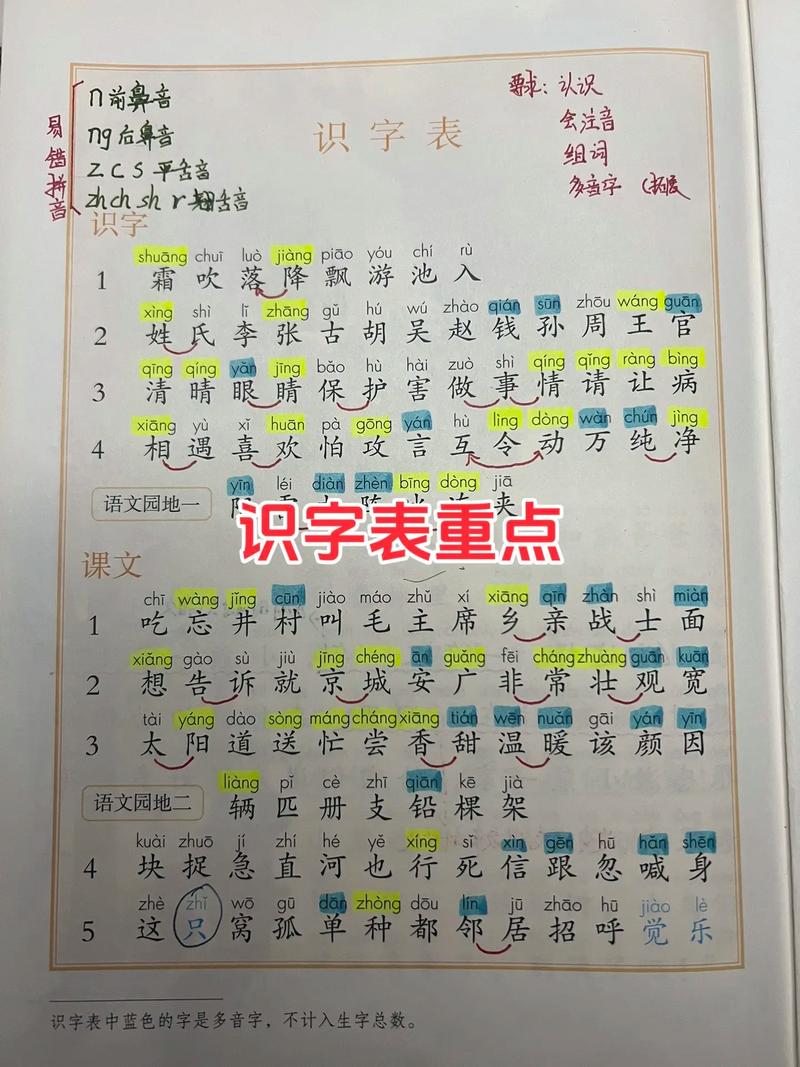 易错拼音
n 前鼻音
ng 后鼻音
z c s 平舌音
zh ch sh r 翘舌音
要求：认识
会注音
组词
多音字
识字表
识字
shuāng chuī luò jiàng piāo yóu chí rù
1 霜 吹 落 降 飘 游 池 入
xìng shì lǐ zhāng gǔ hú wú zhào qián sūn zhōu wáng guān
2 姓 氏 李 张 古 胡 吴 赵 钱 孙 周 王 官
qīng qíng yǎn jīng bǎo hù hài zuò shì qíng qǐng ràng bìng
3 清 晴 眼 睛 保 护 害 做 事 情 请 让 病
xiāng yù xǐ huān pà gōng yán hù lìng dòng wàn chún jìng
4 相 遇 喜 欢 怕 攻 言 互 令 动 万 纯 净
yīn léi diàn zhèn bīng dòng jiā
语文园地一 夹
识字表重点
课文
chī wàng jǐng cūn jiào máo zhǔ xí xiāng qīn zhàn shì miàn
1 吃 忘 井 村 叫 毛 主 席 乡 亲 战 士 面
xiǎng gào sù jiù jīng chéng ān guǎng fēi cháng zhuàng guān kuān
2 想 告 诉 就 京 城 安 广 非 常 壮 观 宽
tài yáng dào sòng máng cháng xiāng tián wēn nuǎn gāi yán yīn
3 太 阳 道 送 忙 尝 香 甜 温 暖 该 颜 因
liàng pǐ cè zhī qiān kē jià
语文园地二 辆 匹 册 支 铅 棵 架
kuài zhuō jí zhí hé yě xíng sǐ xìn gēn hū hǎn shēn
4 块 捉 急 直 河 也 行 死 信 跟 忽 喊 身
zhè zhǐ wō gū dān zhòng dōu lín jū zhāo hū jiào lè
5 这 只 窝 孤 单 种 都 邻 居 招 呼 觉 乐
识字表中蓝色的字是多音字，不计入生字总数。